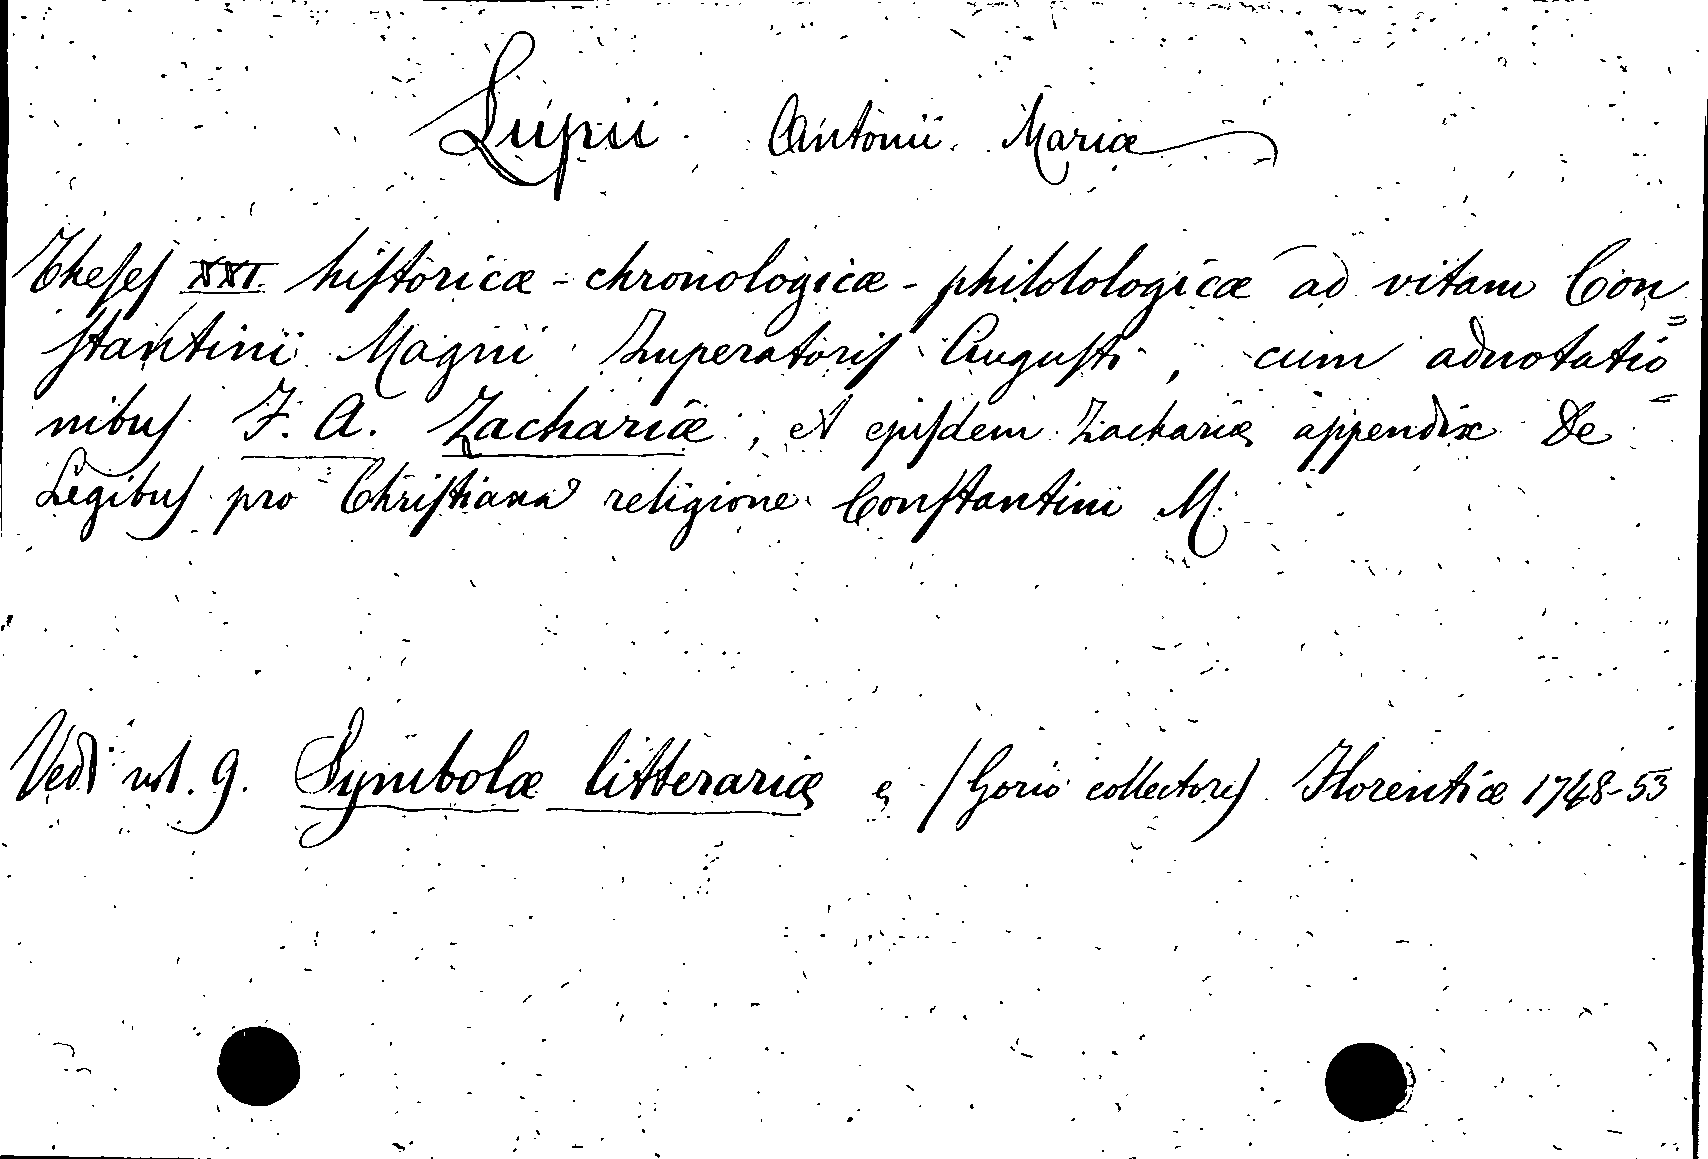 Lupii Antonii Mariæ
Theses XXI historicæ-chronologicæ-philolologicæ ad vitam Con=
stantini Magni Imperatoris Augusti, cum adnotatio=
nibus F. A. Zachariæ, et ejusdem Zachariæ appendix De
Legibus pro Christiana religione Constantini M.
Vedi vol. 9. Symbolæ litterariæ (Gorio collectore) Florentiæ 1748-53